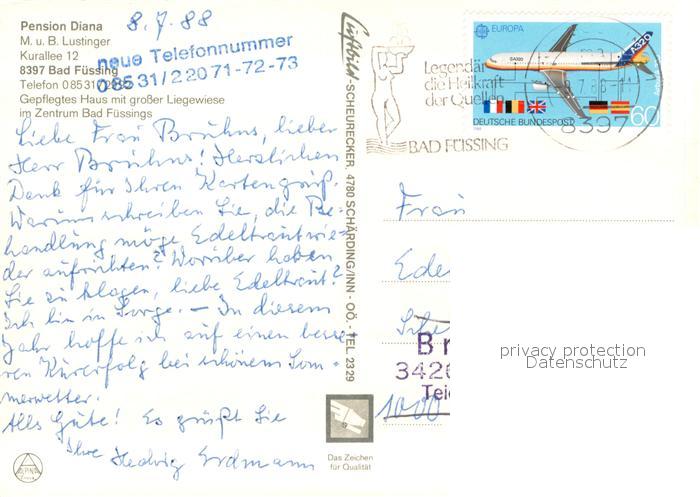 Pension Diana
M. u. B. Lustinger
Kurallee 12
8397 Bad Füssing
Telefon 08531/2
Gepflegtes Haus mit großer Liegewiese
im Zentrum Bad Füssings
8.7.88
neue Telefonnummer
08531/22071-72-73
Liebe Frau Bruhns, lieber
Herr Bruhns! Herzlichen
Dank für Ihren Kartengruß.
Warum schreiben Sie, die Be-
handlung möge Edeltraut wie-
der aufrichten? Worüber haben
Sie zu klagen, liebe Edeltraut?
Ich bin in Sorge. – In diesem
Jahr hoffe ich auf einen besse-
ren Kurerfolg bei schönem Som-
merwetter.
Alles Gute! Es grüßt Sie
Ihre Hedwig Erdmann
ALPINA
Luftbild-SCHEURECKER, 4780 SCHÄRDING/INN - OÖ. - TEL. 2329
Das Zeichen
für Qualität
Legendär
die Heilkraft
der Quellen
BAD FÜSSING
8397
EUROPA
A320
DEUTSCHE BUNDESPOST
60
Frau
Ede
B
3426
Tele
1000
privacy protection
Datenschutz